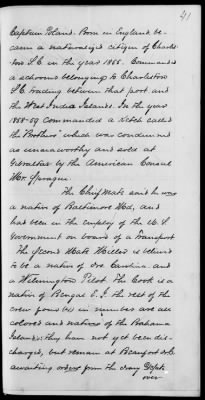 41
Captain Poland. Born in England, be-
came a naturalized citizen of Charles-
ton S.C in the year 1855. Commanded
a schooner belonging to Charleston
S.C. trading between that port and
the West India Islands. In the year
1858-59 commanded a Ketch called
the "Brothers" which was condemned
as unseaworthy and sold at
Gibraltar by the American Consul
Mr. Sprague.
The Chief Mate said he was
a native of Baltimore Md, and
had been in the employ of the U. S
Government on board of a Transport
The Second Mate is believed
to be a native of So Carolina and
a Wilmington Pilot. The Cook is a
native of Bengal E. I. the rest of the
crew in number are all
colored and natives of the Bahama
Islands: they have not yet been dis-
charged, but remain at Beaufort N.C.
awaiting orders from the Navy Dept.
over